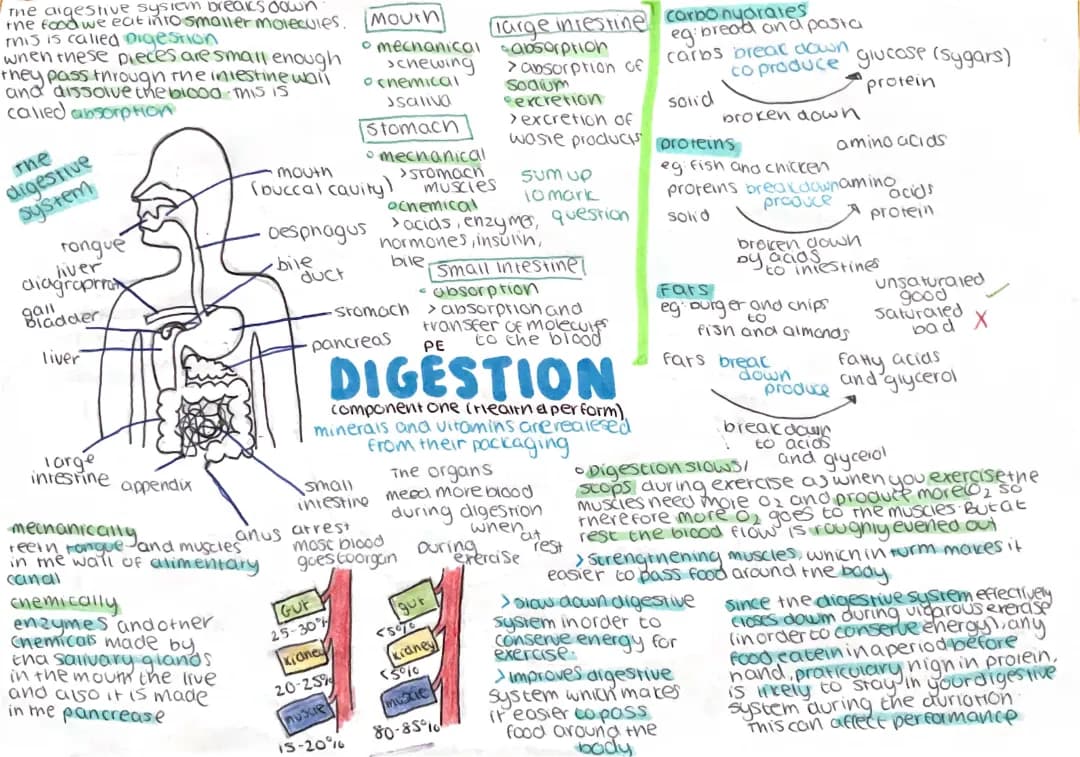 The digestive system breaks down
the food we eat into smaller molecules.
This is called Digestion
when these pieces are small enough
they pass through the intestine wall
and dissolve the blood. This is
called absorption
The
digestive
system
tongue
liver
diagraphram
gall
bladder
liver
large
intestine
appendix
mouth
(buccal cavity)
oesphagus
bile
duct
stomach
pancreas
small
intestine
anus
mouth
mechanical
>chewing
chemical
>saliva
stomach
mechanical
>stomach
muscles
chemical
>acids, enzymes,
hormones, insulin,
bile
large intestine
absorption
>absorption of
sodium
excretion
>excretion of
waste products
sum up
10 mark
question
small intestine
absorption
>absorption and
transfer of molecules
to the blood
PE
DIGESTION
component one (Health & perform)
minerals and vitamins are realesed
from their packaging
carbohydrates
eg: bread and pasta
carbs break down glucose (sygars)
to produce
protein
solid
broken down
proteins
amino acids
eg: fish and chicken
proteins breakdown amino
produce acids
solid
protein
broken down
by acids
to intestines
Fats
unsaturated
good
eg: burger and chips
to
fish and almonds
saturated
bad X
fats break
down
produce
fatty acids
and glycerol
break down
to acids
and glycerol
mechanically
teeth tongue and muscles
in the wall of alimentary
canal
chemically
enzymes and other
chemicals made by
tha salivary glands
in the mouth the live
and also it is made
in the pancrease
The organs
need more blood
during digestion
when at
rest
at rest
most blood
goes to organ
During
exercise
Gut
25-30%
kidney
20-25%
muscle
15-20%
gut
<5%
kidney
<5%
muscle
80-85%
Digestion slows/
stops during exercise as when you exercise the
muscles need more O2 and product more CO2 so
therefore more O2 goes to the muscles. But at
rest the blood flow is roughly evened out
>Strengthening muscles, which in turm makes it
easier to pass food around the body
>slow down digestive
system in order to
conserve energy for
exercise.
>Improves digestive
system which makes
it easier to pass
food around the
body
since the digestive system effectively
closes down during vigarous exercise
(in order to conserve energy), any
food eaten in a period before
hand, praticulary high in protein,
is likely to stay in your digestive
system during the duriation.
This can affect performance